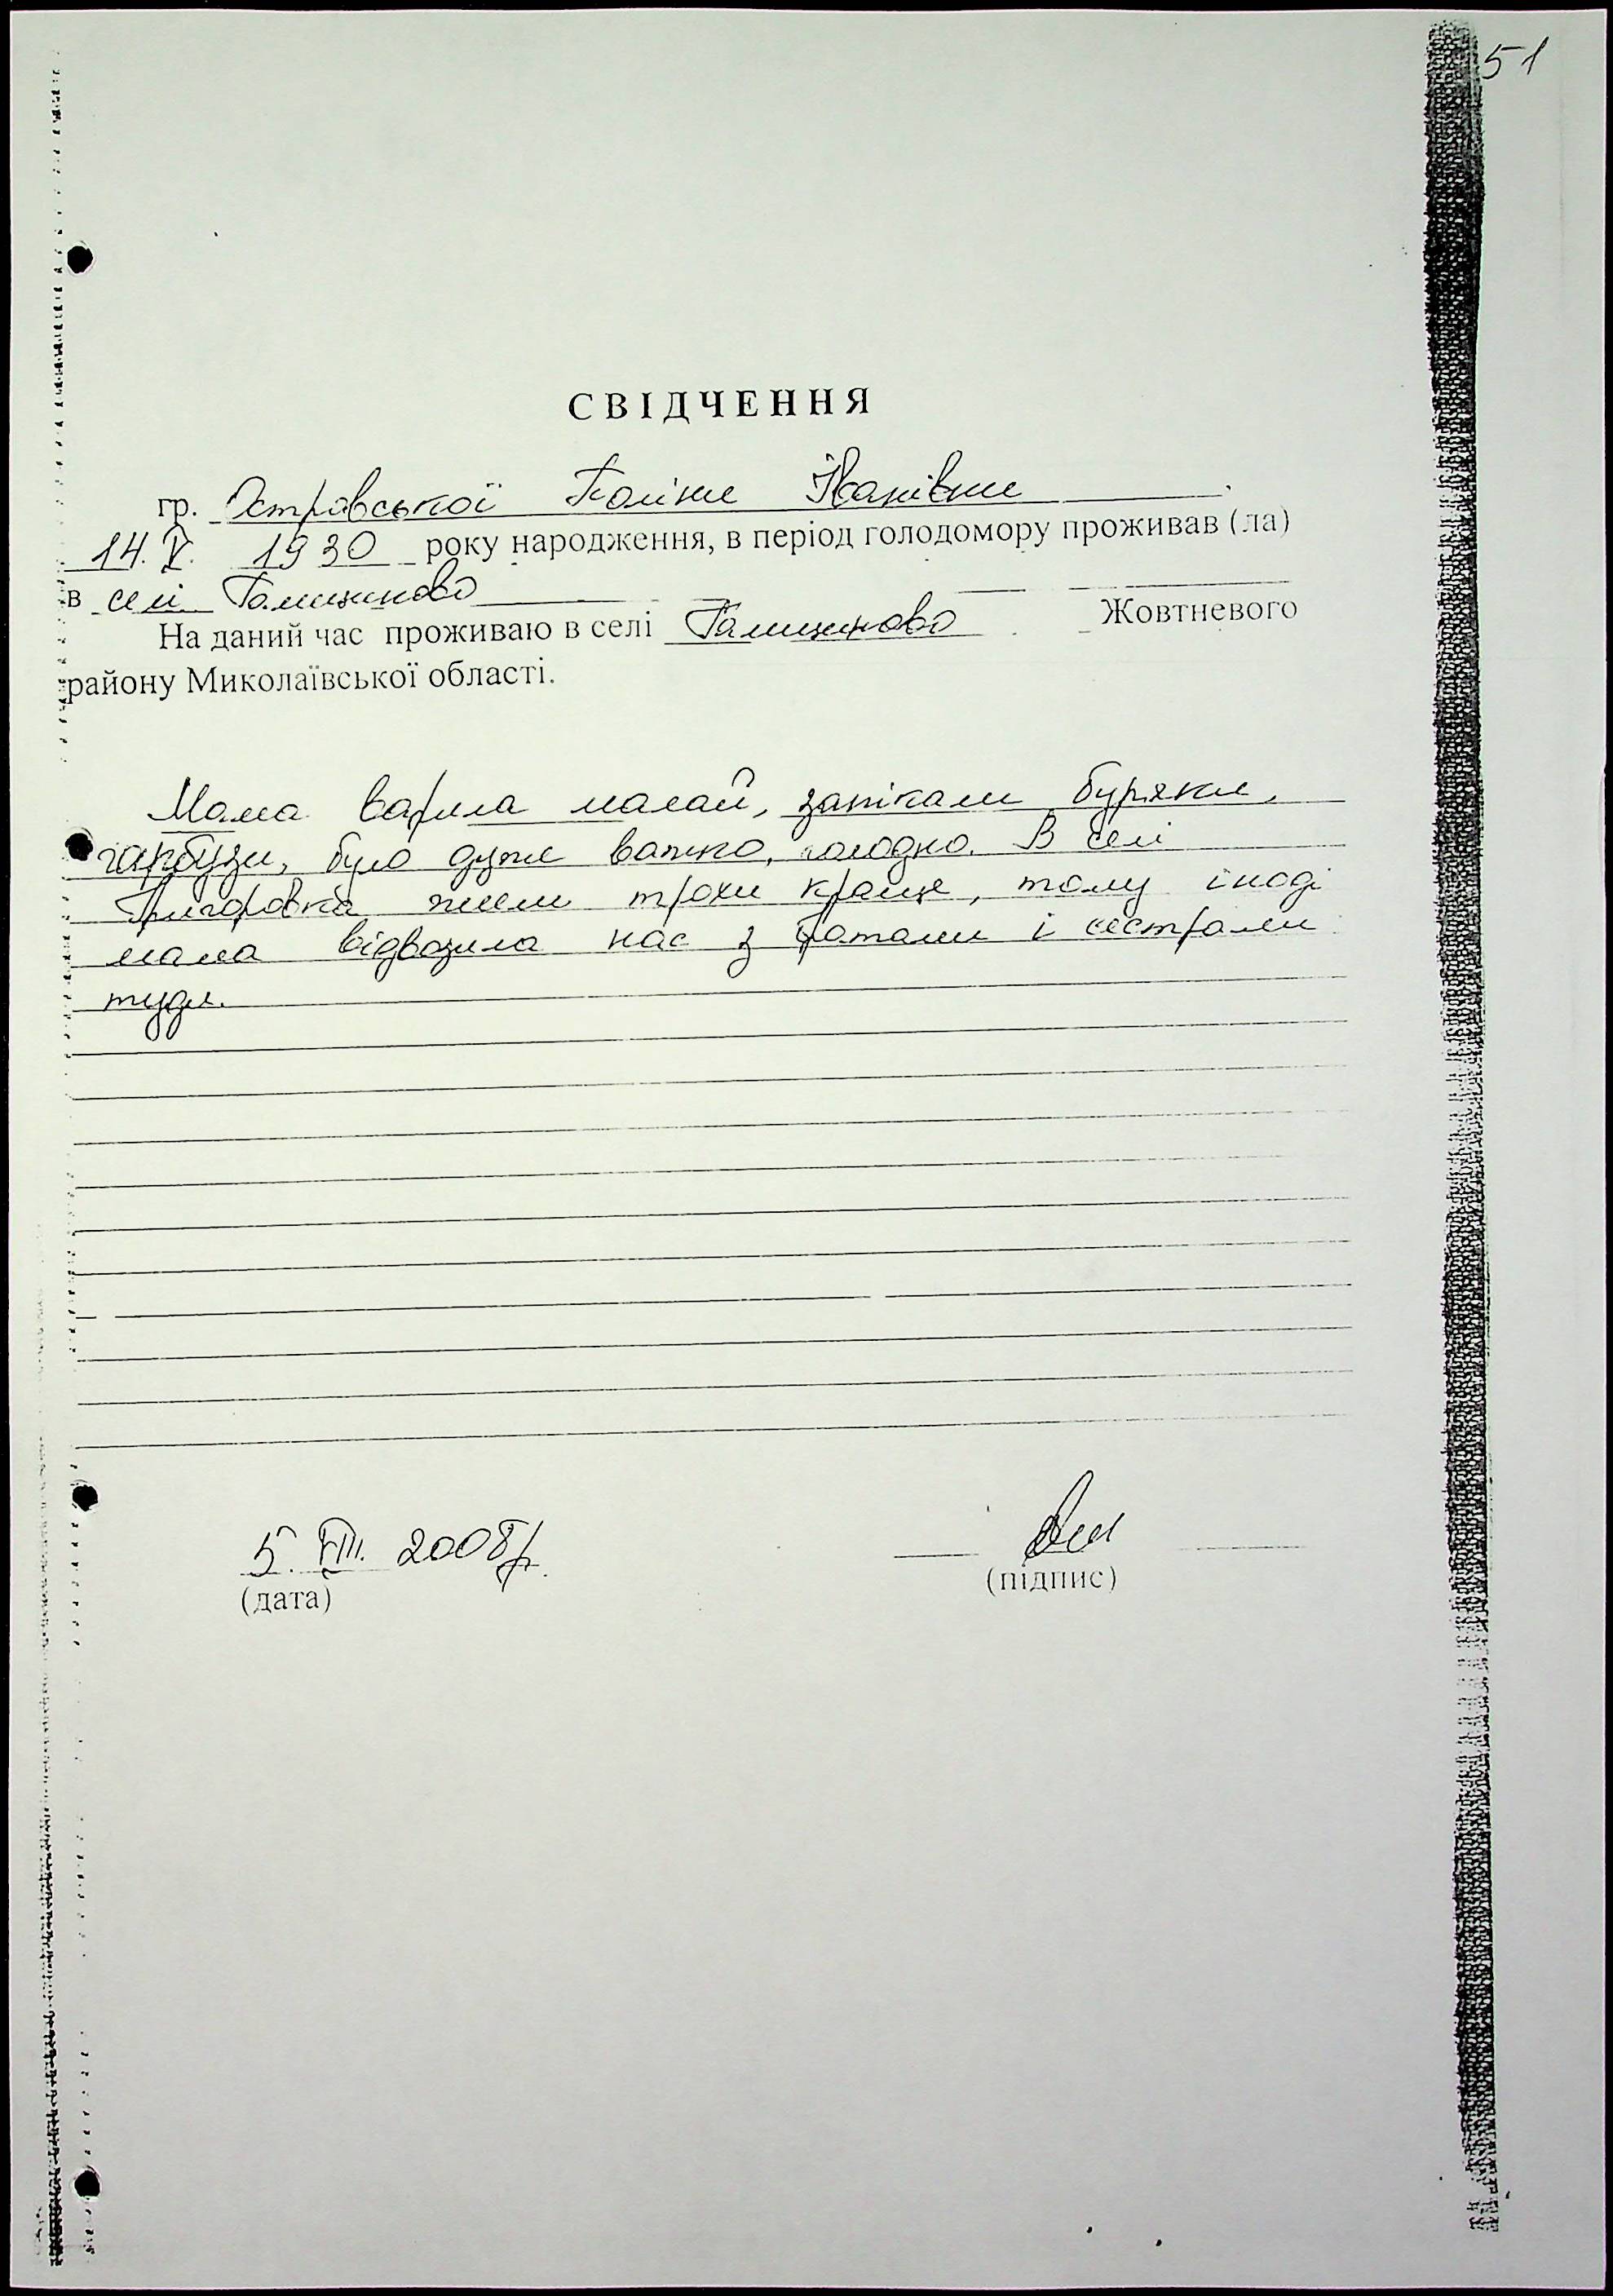 51
СВІДЧЕННЯ
гр. Островської Поліни Іванівни
14. V. 1930 року народження, в період голодомору проживав (ла)
в селі Галициново
На даний час проживаю в селі Галициново Жовтневого
району Миколаївської області.
Мама варила малай, запікали буряки,
гарбузи, було дуже важко, голодно. В селі
Григоровка жили трохи краще, тому іноді
мама відвозила нас з братами і сестрами
туди.
5. VIII. 2008р.
(дата)
(підпис)